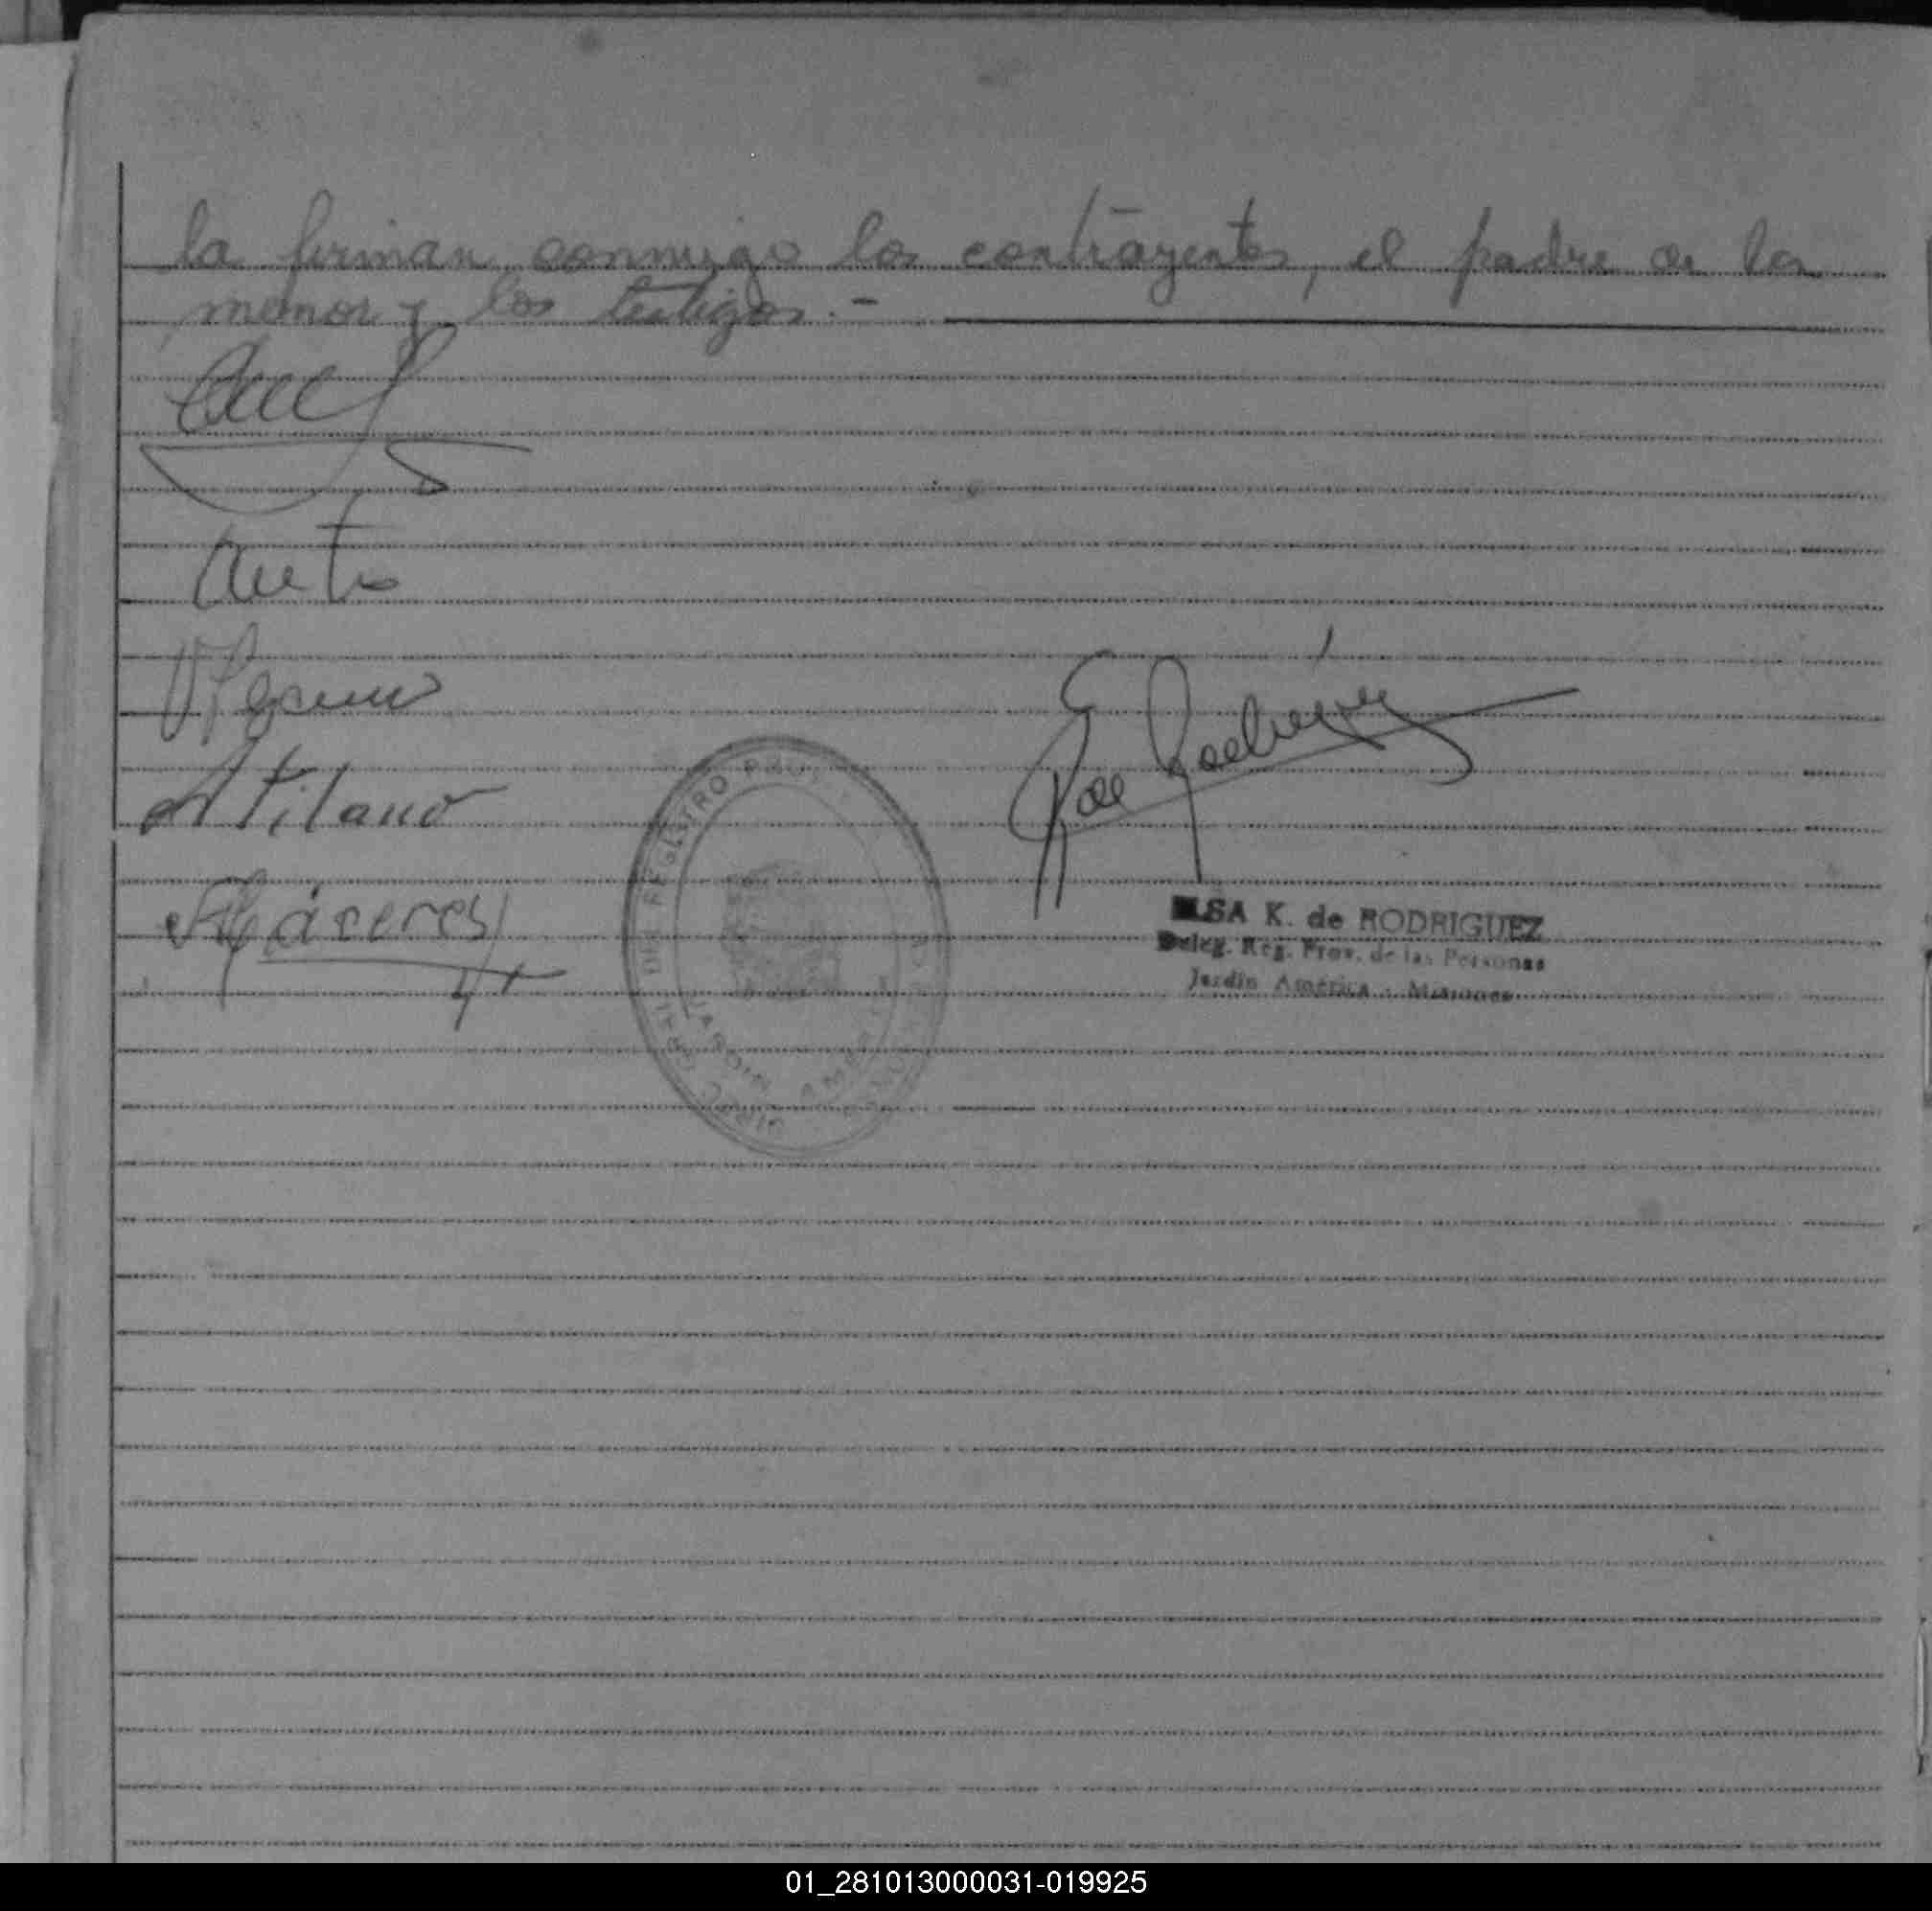 la firman conmigo los contrayentes, el padre de la
menor y los testigos.-
Atilano
Cáceres
REGISTRO
JARDIN AMERICA
ELSA K. de RODRIGUEZ
Deleg. Reg. Prov. de las Personas
Jardín América - Misiones
01_281013000031-019925